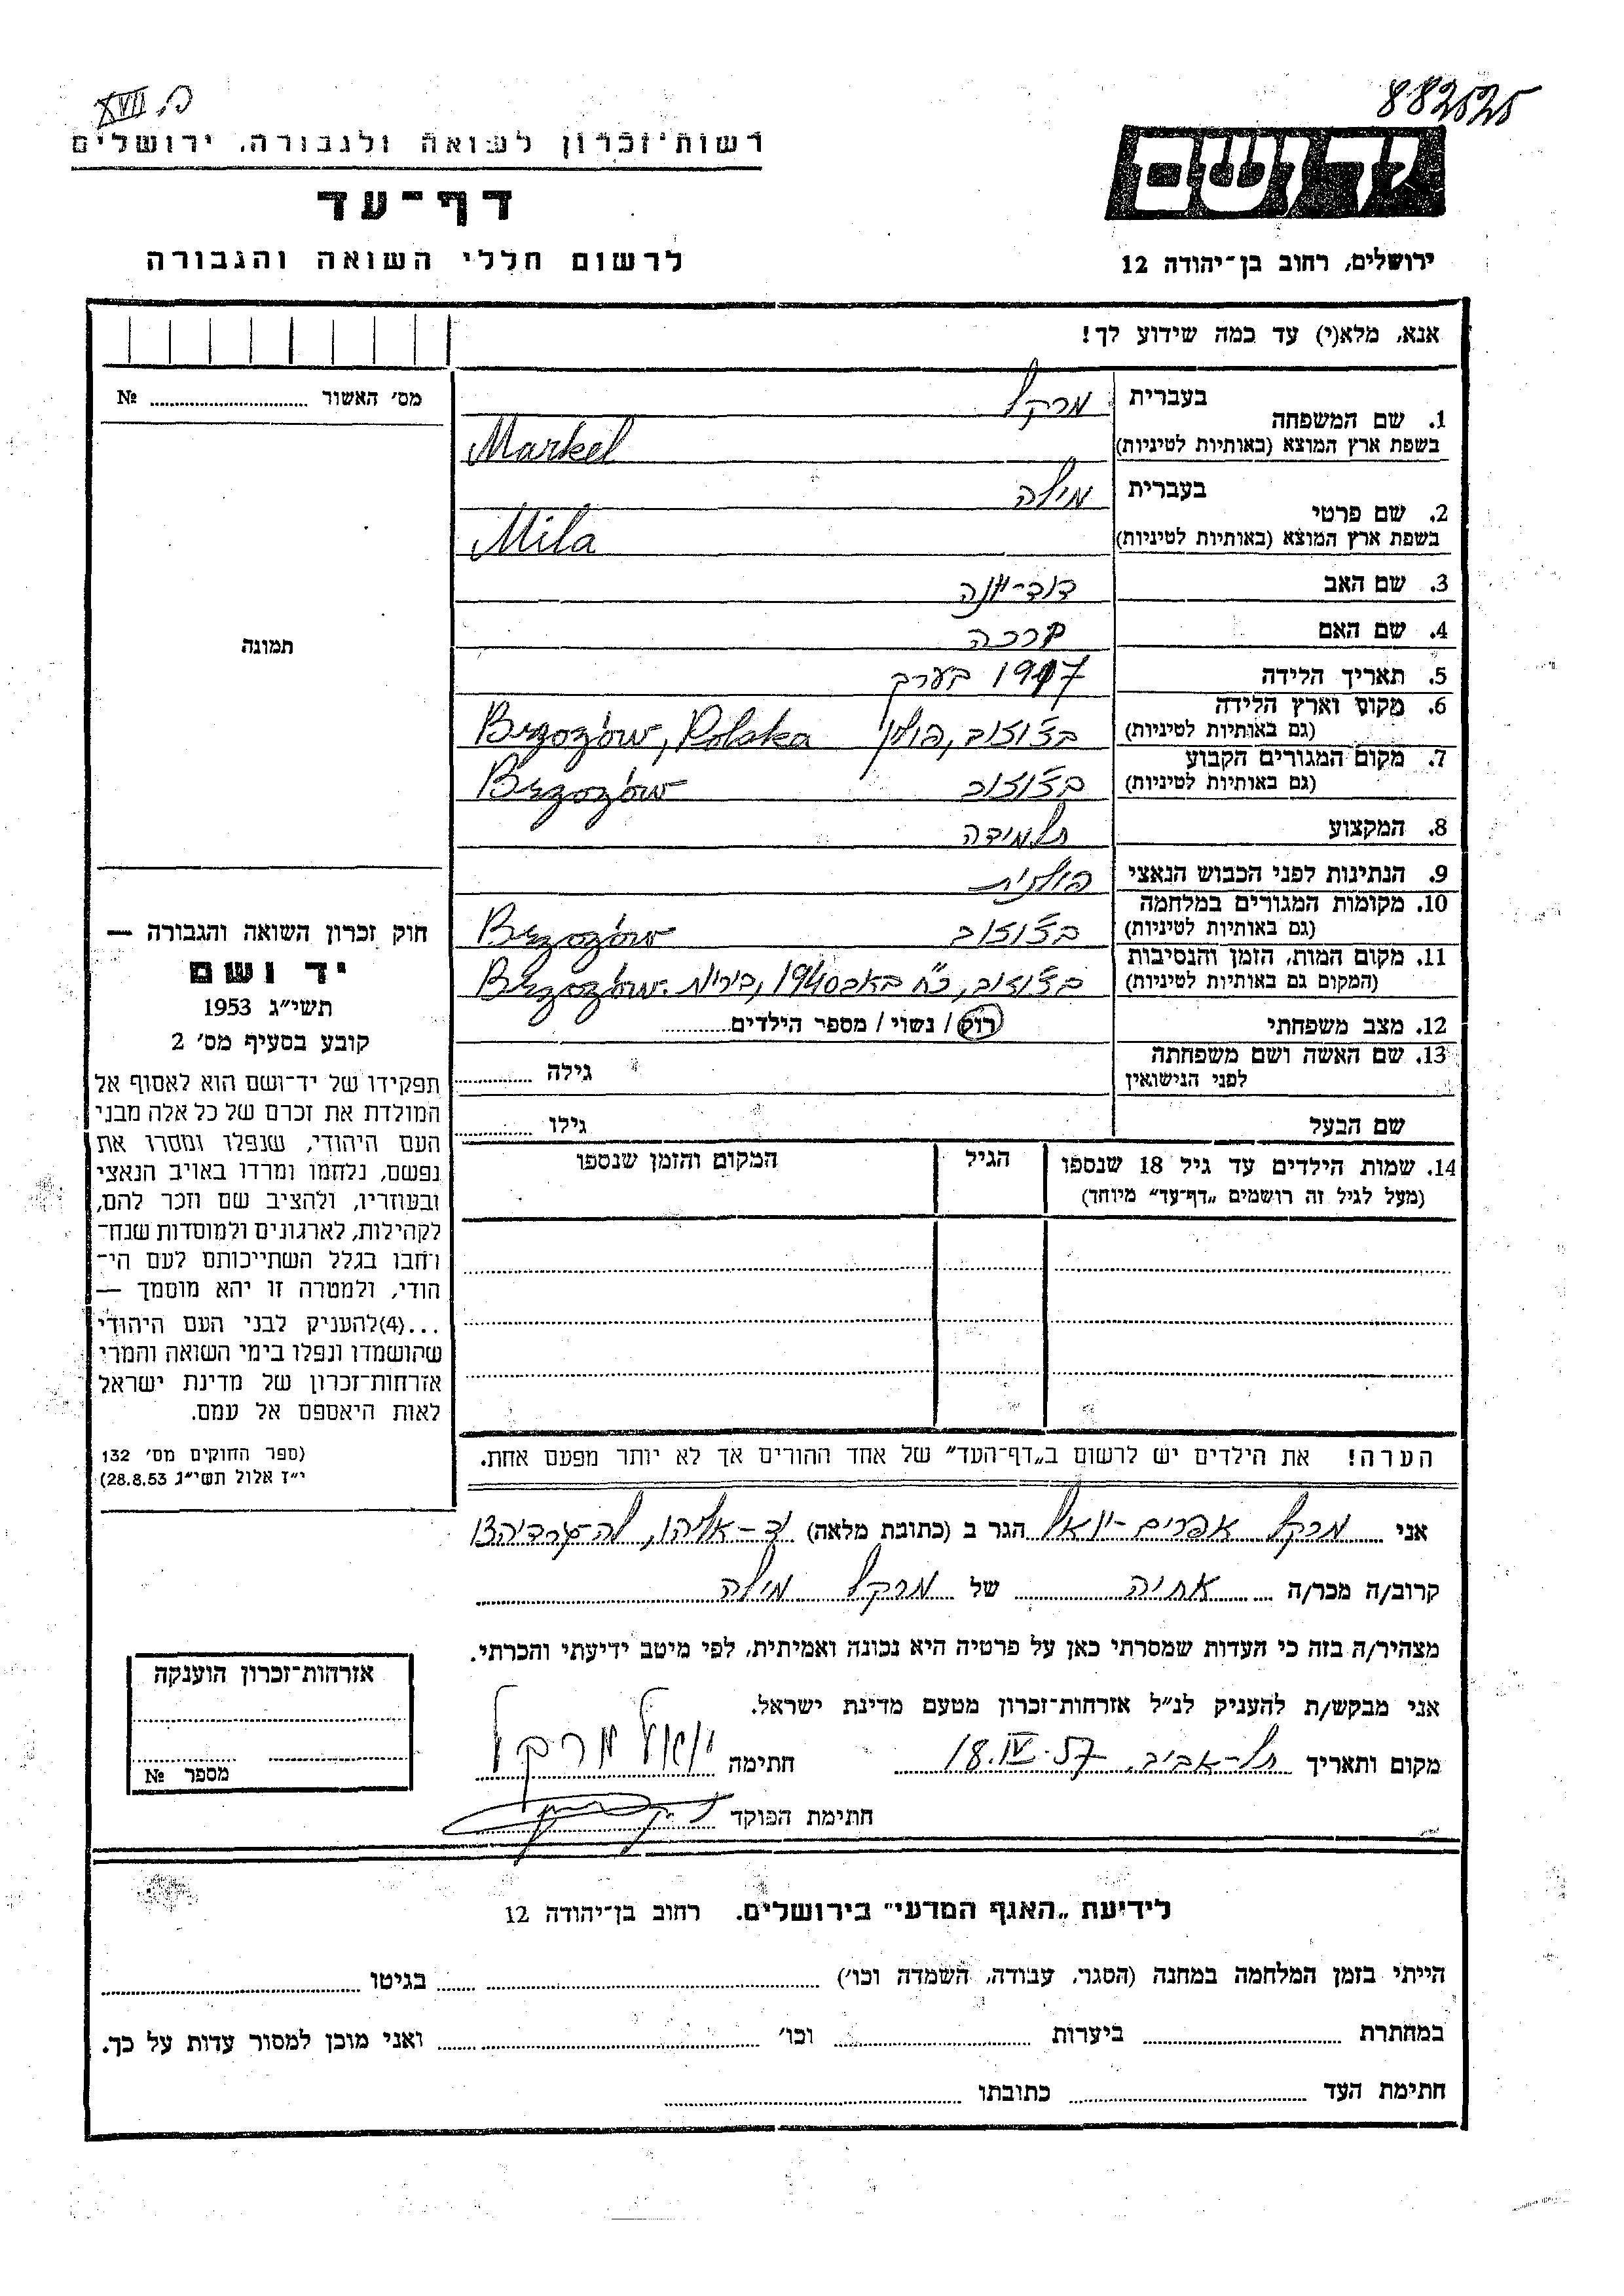 כ. XVII
882525
רשות־זכרון לשואה ולגבורה, ירושלים
דף־עד
לרשום חללי השואה והגבורה
יד ושם
ירושלים, רחוב בן־יהודה 12
אנא, מלא(י) עד כמה שידוע לך!
מס׳ האשור ........ №
תמונה
1. שם המשפחה בעברית מרקל
בשפת ארץ המוצא (באותיות לטיניות) Markel
2. שם פרטי בעברית מילה
בשפת ארץ המוצא (באותיות לטיניות) Mila
3. שם האב דוד-יונה
4. שם האם ברכה
5. תאריך הלידה 1917 בערך
6. מקום וארץ הלידה (גם באותיות לטיניות) בז'וזוב, פולין Brzozów, Polska
7. מקום המגורים הקבוע (גם באותיות לטיניות) בז'וזוב Brzozów
8. המקצוע תלמידה
9. הנתינות לפני הכבוש הנאצי פולנית
10. מקומות המגורים במלחמה (גם באותיות לטיניות) בז'וזוב Brzozów
11. מקום המות, הזמן והנסיבות (המקום גם באותיות לטיניות) בז'וזוב, כ"ח באב 1940, ביריות. Brzozów
12. מצב משפחתי רוק / נשוי / מספר הילדים........
13. שם האשה ושם משפחתה לפני הנישואין גילה ........
שם הבעל גילו ........
14. שמות הילדים עד גיל 18 שנספו (מעל לגיל זה רושמים „דף־עד״ מיוחד) הגיל המקום והזמן שנספו
חוק זכרון השואה והגבורה —
יד ושם
תשי״ג 1953
קובע בסעיף מס׳ 2
תפקידו של יד־ושם הוא לאסוף אל
המולדת את זכרם של כל אלה מבני
העם היהודי, שנפלו ומסרו את
נפשם, נלחמו ומרדו באויב הנאצי
ובעוזריו, ולהציב שם וזכר להם,
לקהילות, לארגונים ולמוסדות שנח־
רחבו בגלל השתייכותם לעם הי־
הודי, ולמטרה זו יהא מוסמך —
...(4)להעניק לבני העם היהודי
שהושמדו ונפלו בימי השואה והמרי
אזרחות־זכרון של מדינת ישראל
לאות היאספם אל עמם.
(ספר החוקים מס׳ 132
י״ז אלול תשי״ג 28.8.53)
הערה! את הילדים יש לרשום ב„דף־העד״ של אחד ההורים אך לא יותר מפעם אחת.
אני מרקל אפרים-יואל הגר ב (כתובת מלאה) יד-אליהו, לה-גרדיה 13
קרוב/ה מכר/ה אחיה של מרקל מילה
מצהיר/ה בזה כי העדות שמסרתי כאן על פרטיה היא נכונה ואמיתית, לפי מיטב ידיעתי והכרתי.
אני מבקש/ת להעניק לנ״ל אזרחות־זכרון מטעם מדינת ישראל.
מקום ותאריך תל-אביב, 18.IV.57 חתימה יואל מרקל
חתימת הפוקד
אזרחות־זכרון הוענקה
מספר №
לידיעת „האגף המדעי״ בירושלים. רחוב בן־יהודה 12
הייתי בזמן המלחמה במחנה (הסגר, עבודה, השמדה וכו׳) ........ בגיטו ........
במחתרת ........ ביערות ........ וכו׳ ........ ואני מוכן למסור עדות על כך.
חתימת העד ........ כתובתו ........